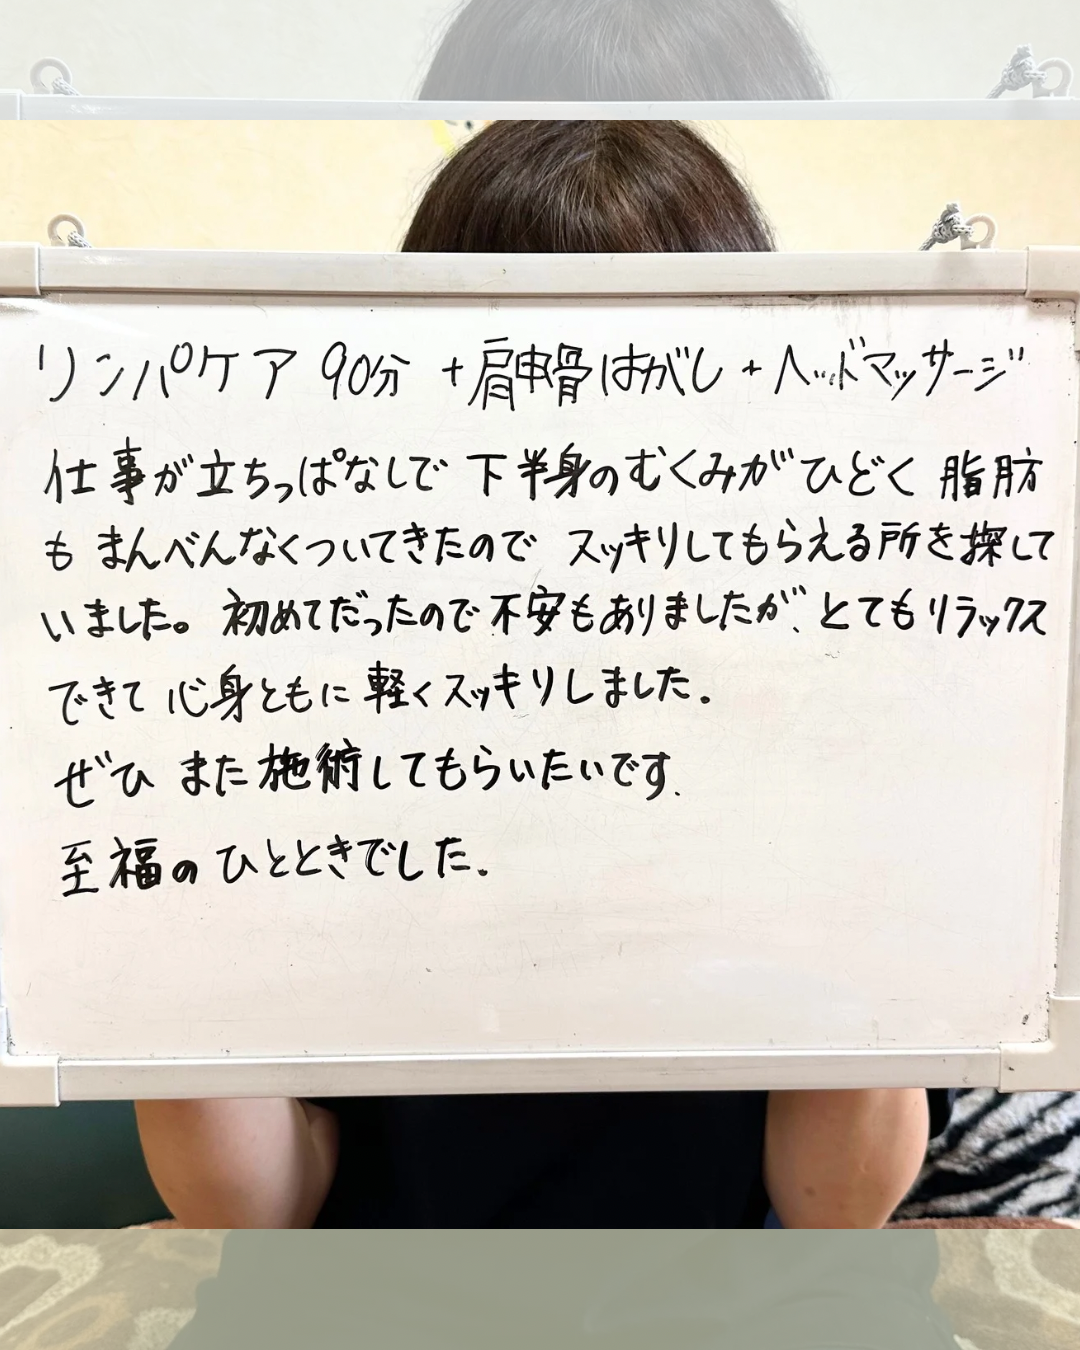 リンパケア 90分 +肩甲骨はがし + ヘッドマッサージ
仕事が立ちっぱなしで 下半身のむくみがひどく 脂肪
も まんべんなくついてきたので スッキリしてもらえる所を探して
いました。初めてだったので不安もありましたが、とてもリラックス
できて 心身ともに 軽くスッキリしました。
ぜひ また施術してもらいたいです。
至福の ひとときでした。